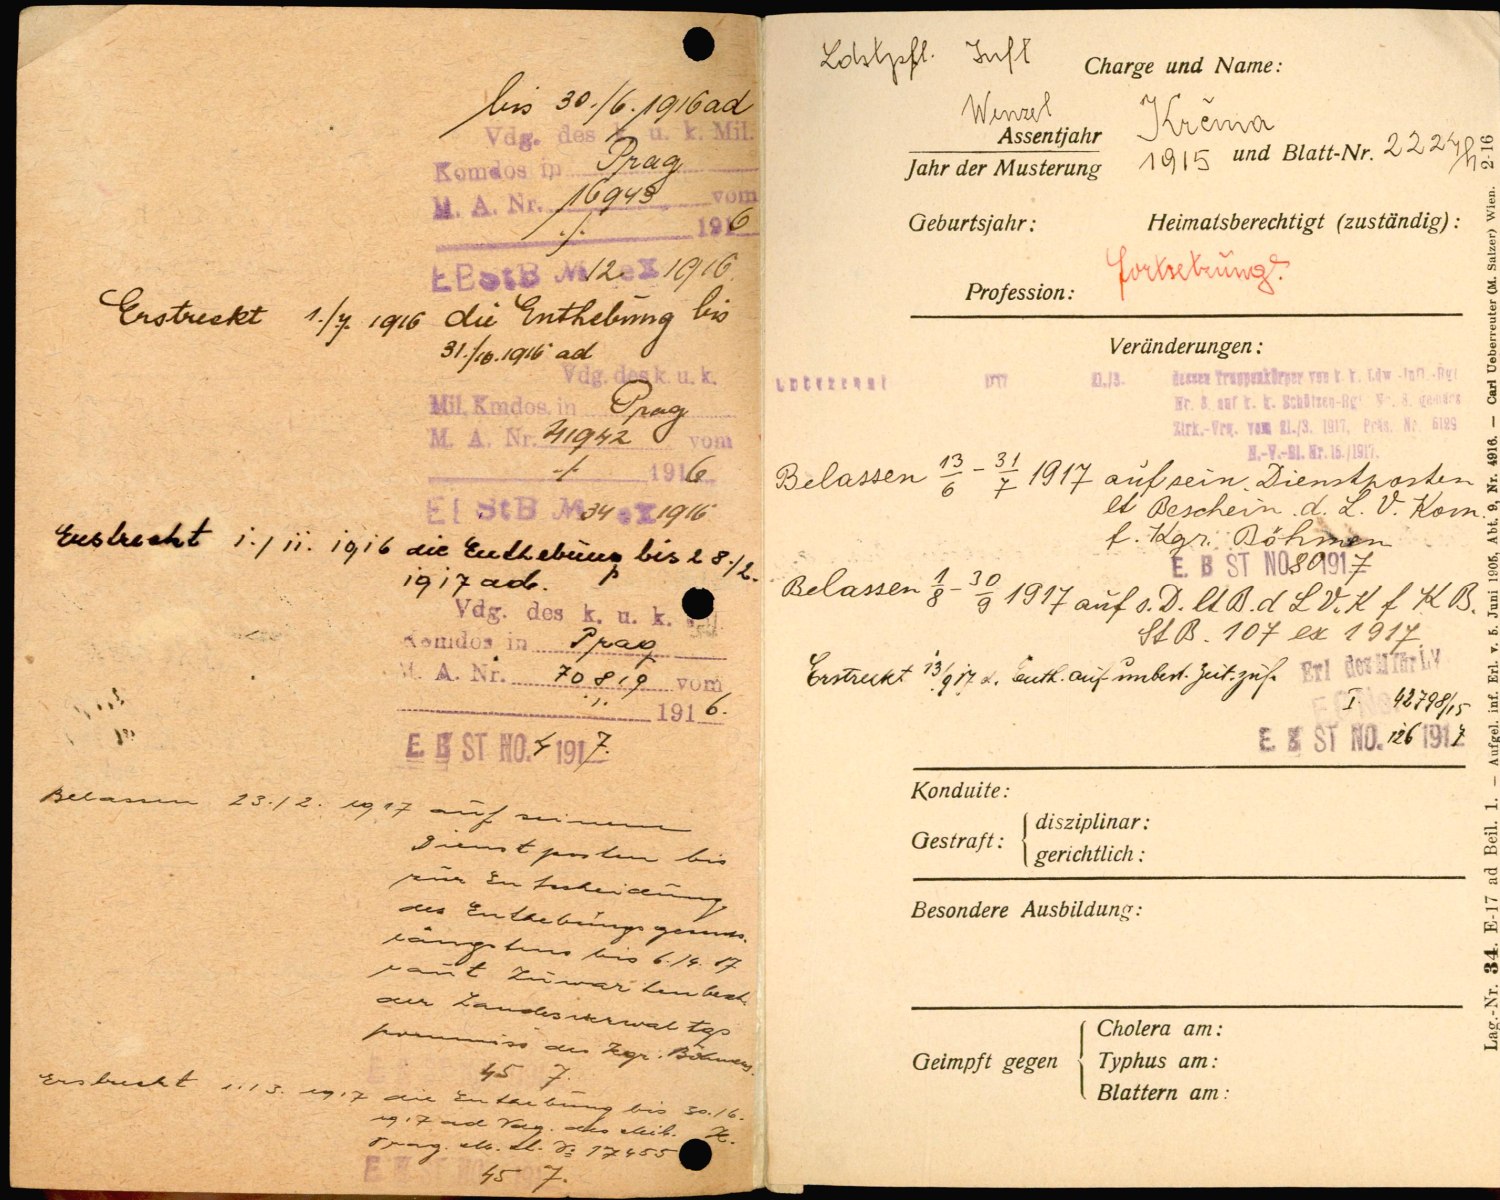 bis 30./6. 1916 ad
Vdg. des k. u. k. Mil.
Komdos in Prag
M. A. Nr. 16943 vom
./. 1916
EBStB No 12 ex 1916.
Erstreckt 1./7. 1916 die Enthebung bis
31./10. 1916 ad
Vdg. des k. u. k.
Mil. Kmdos. in Prag
M. A. Nr. 41942 vom
./. 1916
EBStB No 34 ex 1916
Erstreckt 1./11. 1916 die Enthebung bis 28./2.
1917 ad.
Vdg. des k. u. k. Mil.
Komdos in Prag
M. A. Nr. 70819 vom
1916.
E. B ST NO. 4 1917.
Belassen 23./2. 1917 auf seinem
Dienstposten bis
zur Entscheidung
des Enthebungsgesuchs.
längstens bis 6./4. 17
laut Zuwartenbesch.
der Landesverwaltgs
kommiss des Kgr. Böhmens.
45 7.
Erstreckt 1./3. 1917 die Enthebung bis 30./6.
1917 ad Vdg. des Mil. K.
Prag. M. A. No 17455
45 7.
Ldstpfl. Inft Charge und Name:
Wenzel Krčma
Assentjahr
Jahr der Musterung 1915 und Blatt-Nr. 222
Geburtsjahr: Heimatsberechtigt (zuständig):
Fortsetzung.
Profession:
Veränderungen:
1917 21./3. dessen Truppenkörper von k. k. Ldw.-Inft.-Rgt
Nr. 8 auf k. k. Schützen-Rgt Nr. 8. gemäss
Zirk.-Vrg. vom 21./3. 1917, Präs. Nr. 6189
N.-V.-Bl. Nr. 15./1917.
Belassen 13/6 - 31/7 1917 auf sein. Dienstposten
lt Beschein. d. L. V. Kom.
f. Kgr. Böhmen
E. B ST NO. 80 1917
Belassen 1/8 - 30/9 1917 auf s. D. lt B. d L V. K f K B.
St B. 107 ex 1917
Erstreckt 13/9 17 d. Enth. auf unbest. Zeit zuf.
Erl des M für LV
I 42798/15
E B ST NO. 126 1917
Konduite:
Gestraft: disziplinar:
gerichtlich:
Besondere Ausbildung:
Geimpft gegen Cholera am:
Typhus am:
Blattern am:
Lag.-Nr. 34. E-17 ad Beil. 1. — Aufgel. inf. Erl. v. 5. Juni 1905, Abt. 9, Nr. 4916. — Carl Ueberreuter (M. Salzer) Wien. 2-16